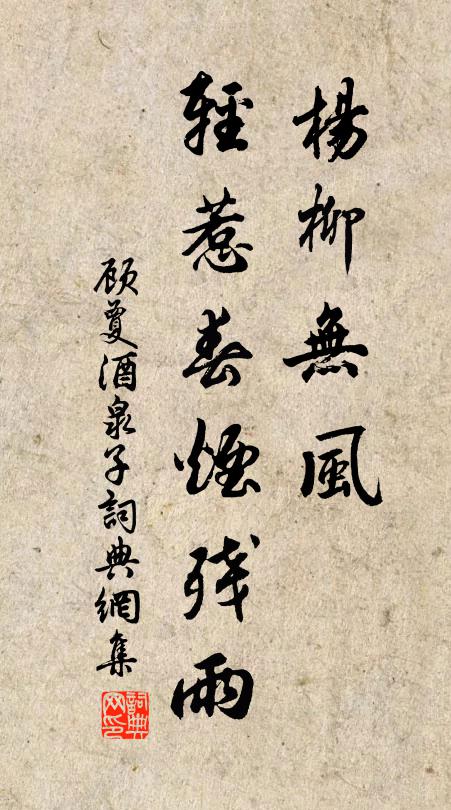 楊柳無風
輕惹春煙殘雨
顾夐酒泉子詞典網集
詞典网印